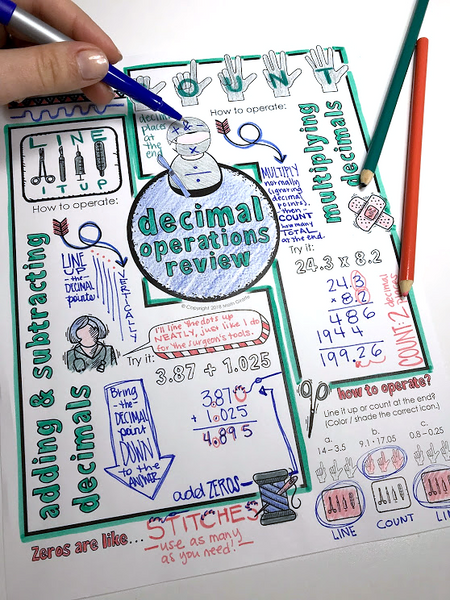 COUNT
decimal
place
at
the
end
+ &
-
×
÷
How to operate:
MULTIPLY
normally
(ignoring
decimal
points),
then
COUNT
how many
TOTAL
at the end.
multiplying
decimals
Try it:
24.3 x 8.2
24.3
x 8.2
486
1944
199.26
COUNT: 2 decimal
LINE
IT UP
How to operate:
LINE
UP
-the-
DECIMAL
points!
VERTICALLY
adding & subtracting
decimals
decimal
operations
review
I'll line the dots up
NEATLY, just like I do
for the surgeon's tools.
Try it:
3.87 + 1.025
3.87
+ 1.025
4.895
Bring
-the-
DECIMAL
point
DOWN
to the
ANSWER
add ZEROS
Zeros are like...
STITCHES
use as many
as you need!
how to operate?
Line it up or count at the end?
(Color / shade the correct icon.)
a. b. c.
14 – 3.5 9.1 · 17.05 0.8 – 0.25
LINE COUNT LINE